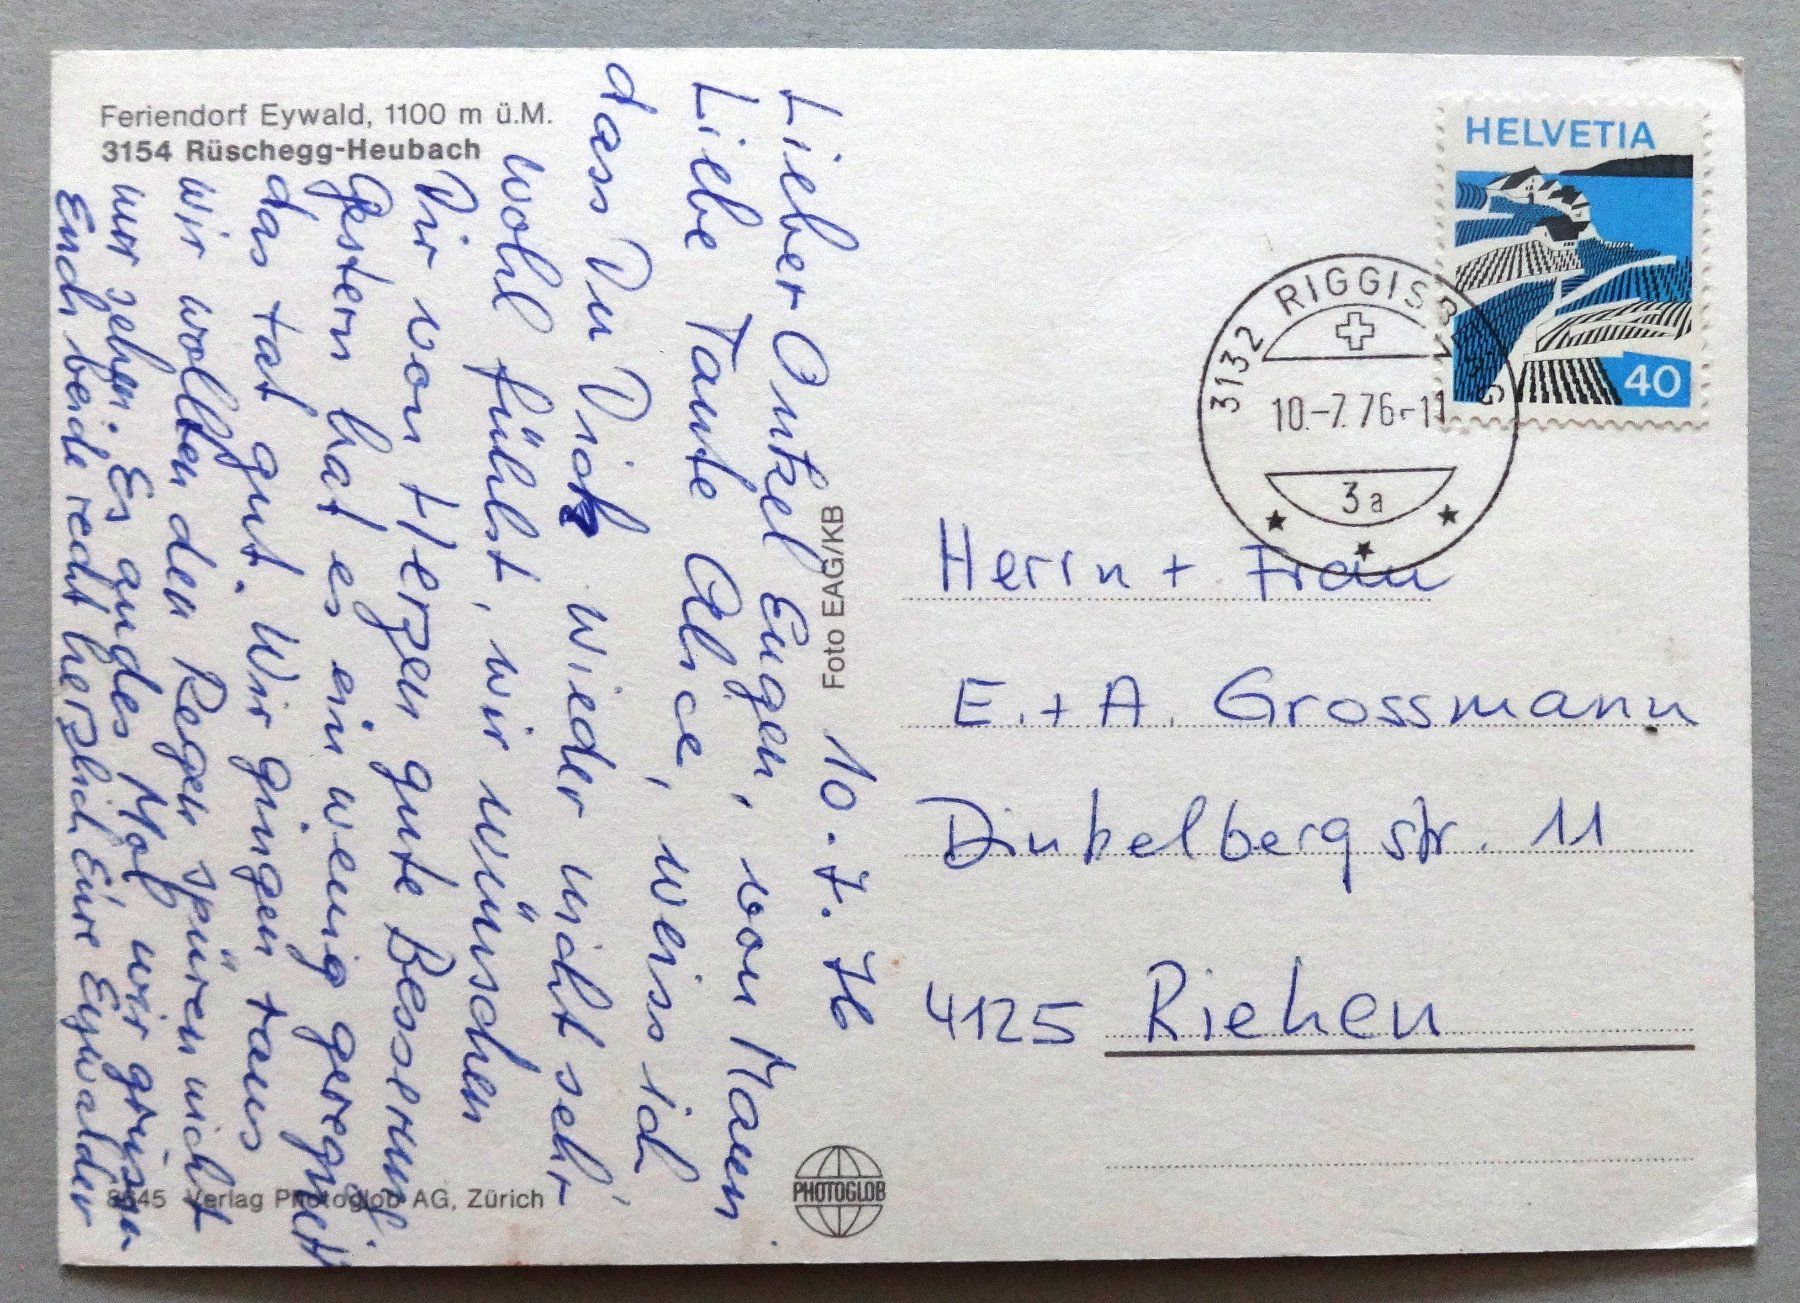 Feriendorf Eywald, 1100 m ü.M.
3154 Rüschegg-Heubach
10.7.76
Lieber Onkel Eugen, von Mami
Liebe Tante Alice, weiss ich,
dass Du Dich wieder nicht sehr
wohl fühlst, wir wünschen
Dir von Herzen gute Besserung.
Gestern hat es ein wenig geregnet
das tat gut. Wir gingen raus
wir wollten den Regen spüren nicht
nur sehen. Es andes Mal wir grüssen
Euch beide recht herzlich Eure Eywalder
8645 Verlag Photoglob AG, Zürich
Foto EAG/KB
PHOTOGLOB
HELVETIA
40
3132 RIGGISBERG
10.-7.76-11
3a
Herrn + Frau
E. + A. Grossmann
Dinkelbergstr. 11
4125 Riehen